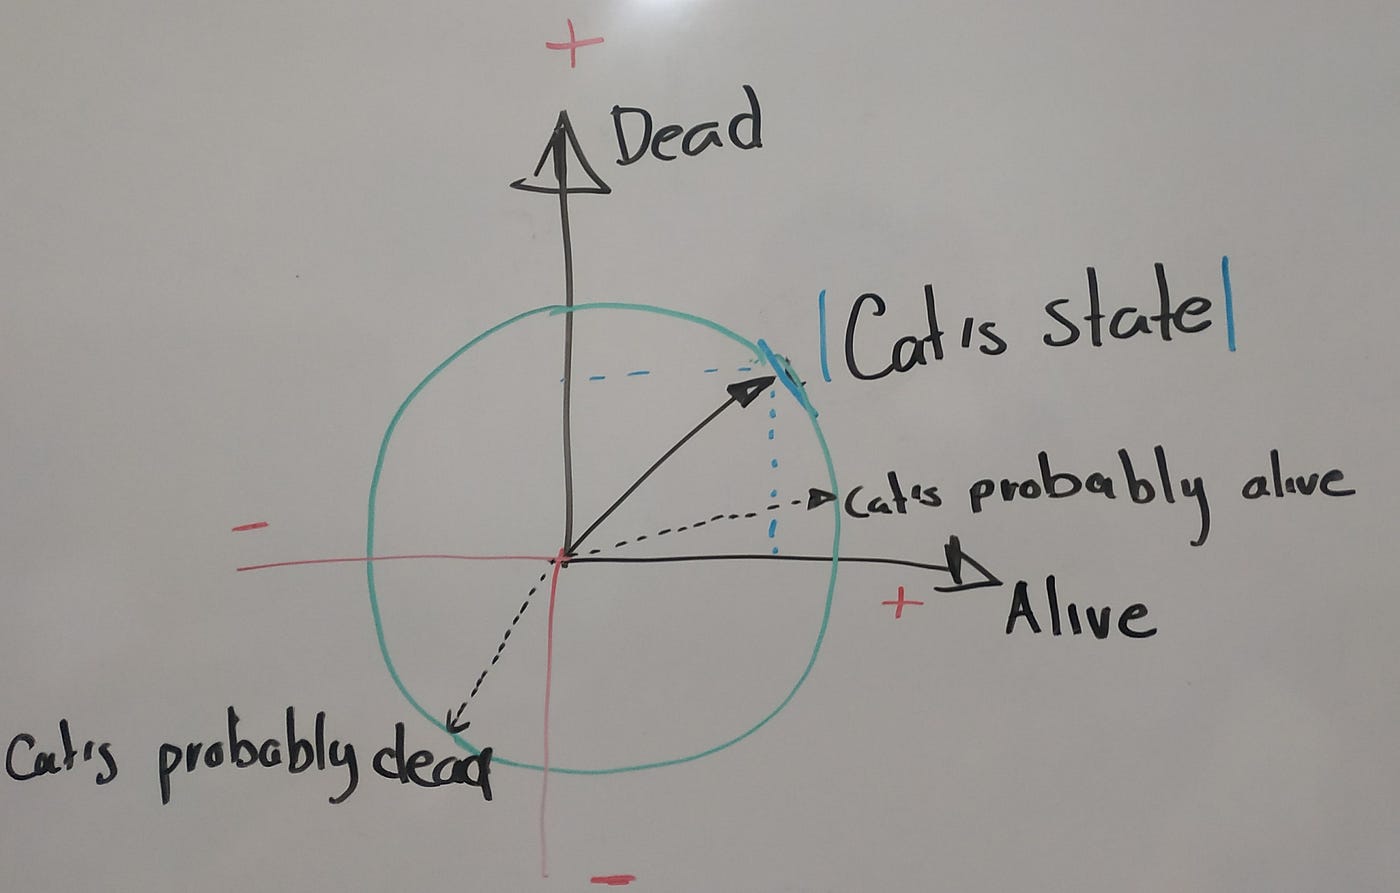 +
Dead
|Cat's state|
Cat's probably alive
-
+
Alive
Cat's probably dead
-